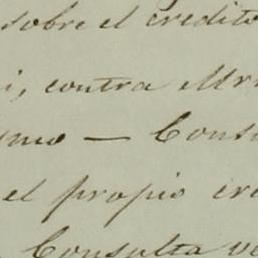 sobre el credito
contra
— Cons
el propio cre
Consulta